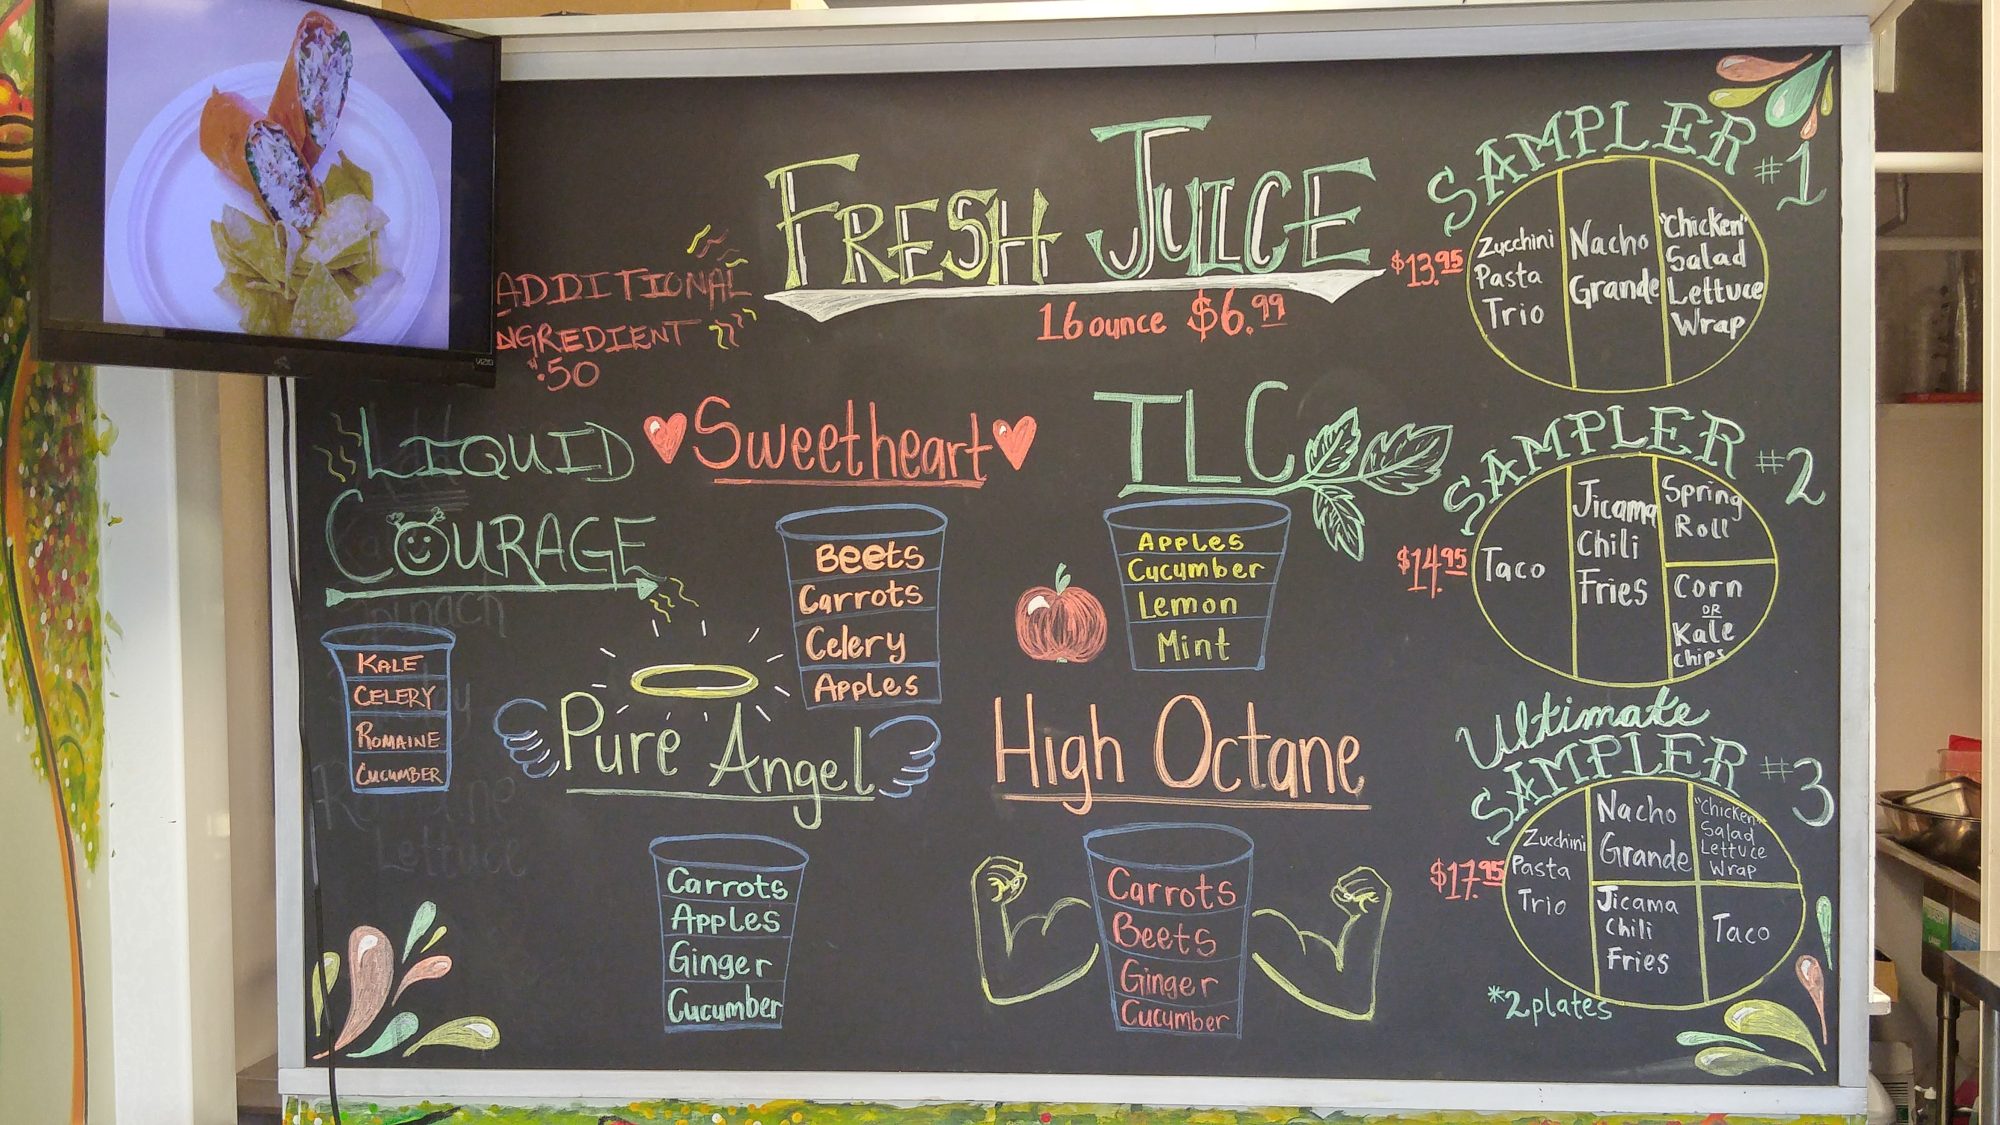 FRESH JUICE
16 ounce $6.99
ADDITIONAL
INGREDIENT
$.50
LIQUID
COURAGE
KALE
CELERY
ROMAINE
CUCUMBER
Sweetheart
BEETS
Carrots
Celery
Apples
TLC
Apples
Cucumber
Lemon
Mint
Pure Angel
Carrots
Apples
Ginger
Cucumber
High Octane
Carrots
Beets
Ginger
Cucumber
SAMPLER #1
$13.95
Zucchini
Pasta
Trio
Nacho
Grande
"Chicken"
Salad
Lettuce
Wrap
SAMPLER #2
$14.95
Taco
Jicama
Chili
Fries
Spring
Roll
Corn
OR
Kale
chips
Ultimate
SAMPLER #3
$17.95
Zucchini
Pasta
Trio
Nacho
Grande
"Chicken"
Salad
Lettuce
Wrap
Jicama
Chili
Fries
Taco
*2 plates
VIZIO
Spinach
Romaine
Lettuce